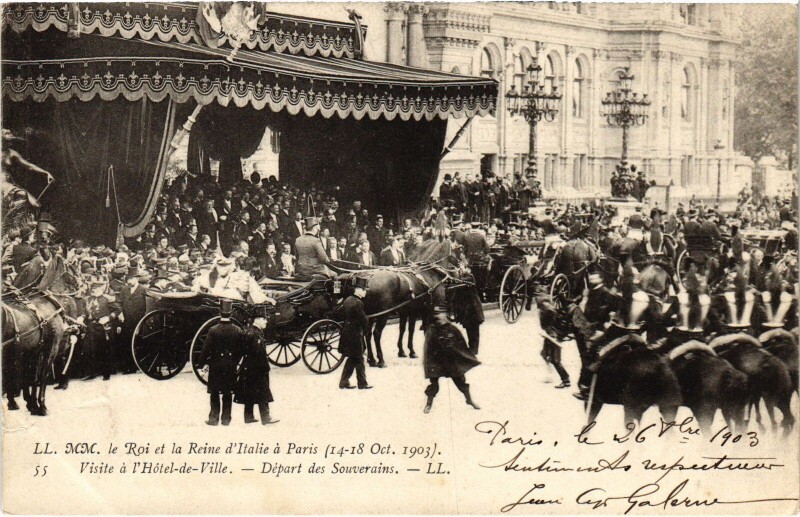 LL. MM. le Roi et la Reine d'Italie à Paris (14-18 Oct. 1903).
55 Visite à l'Hôtel-de-Ville. — Départ des Souverains. — LL.
Paris, le 26 1903
Sentiments respectueux
Jean Galerne